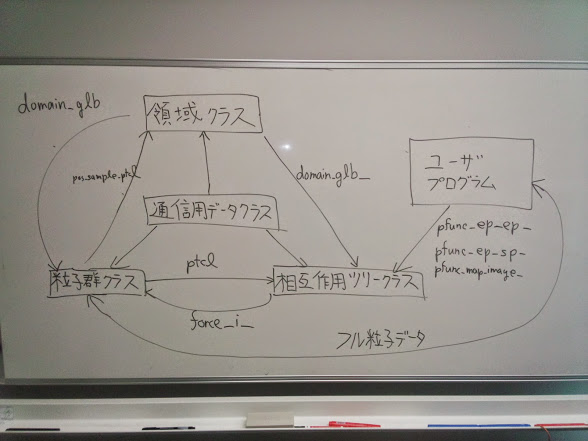 domain_glb
領域クラス
pos_sample_ptcl
domain_glb_
ユーザ
プログラム
通信用データクラス
pfunc_ep_ep_
pfunc_ep_sp_
pfunc_map_image_
ptcl
粒子群クラス
相互作用ツリークラス
force_i_
フル粒子データ